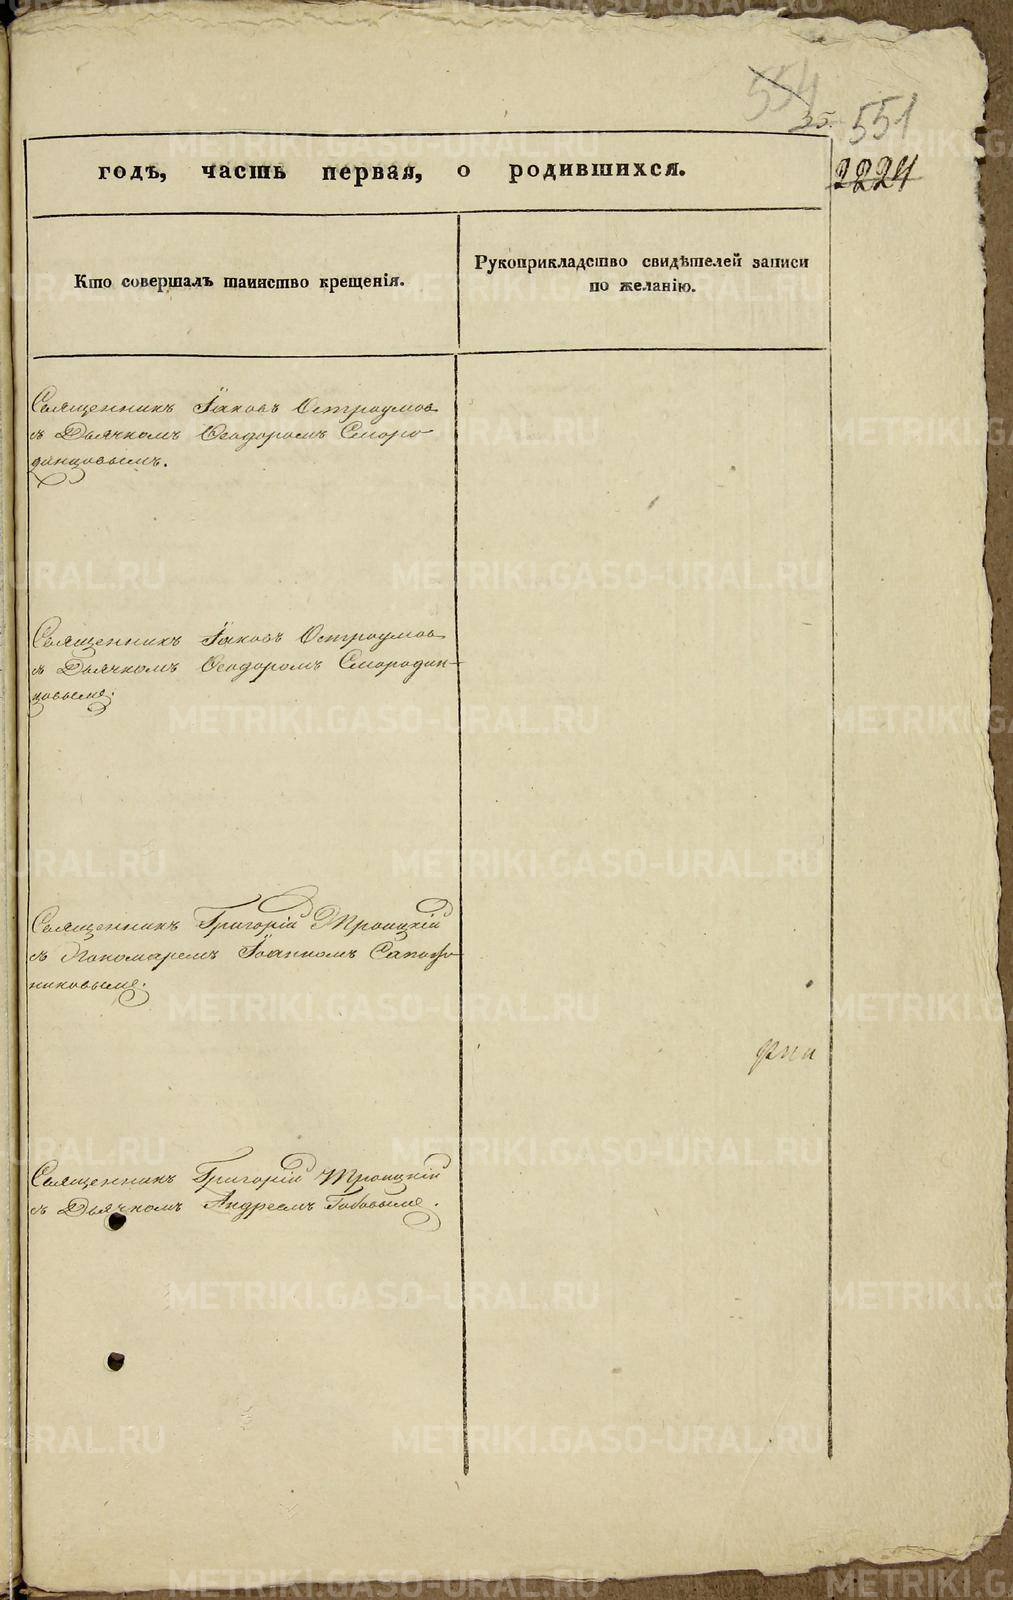 554
35.
551
2224
годъ, часть первая, о родившихся.
Кто совершалъ таинство крещенія.
Рукоприкладство свидѣтелей записи
по желанію.
Священникъ Іаковъ Остроумов
съ Дьячкомъ Ѳеодоромъ Сморо
динцовымъ.
Священникъ Іаковъ Остроумов
съ Дьячкомъ Ѳеодоромъ Смородин-
цовымъ.
Священникъ Григорій Троицкій
съ Пономаремъ Іоанномъ Сапож-
никовымъ.
Священникъ Григорій Троицкій
съ Дьячкомъ Андреемъ
METRIKI.GASO-URAL.RU